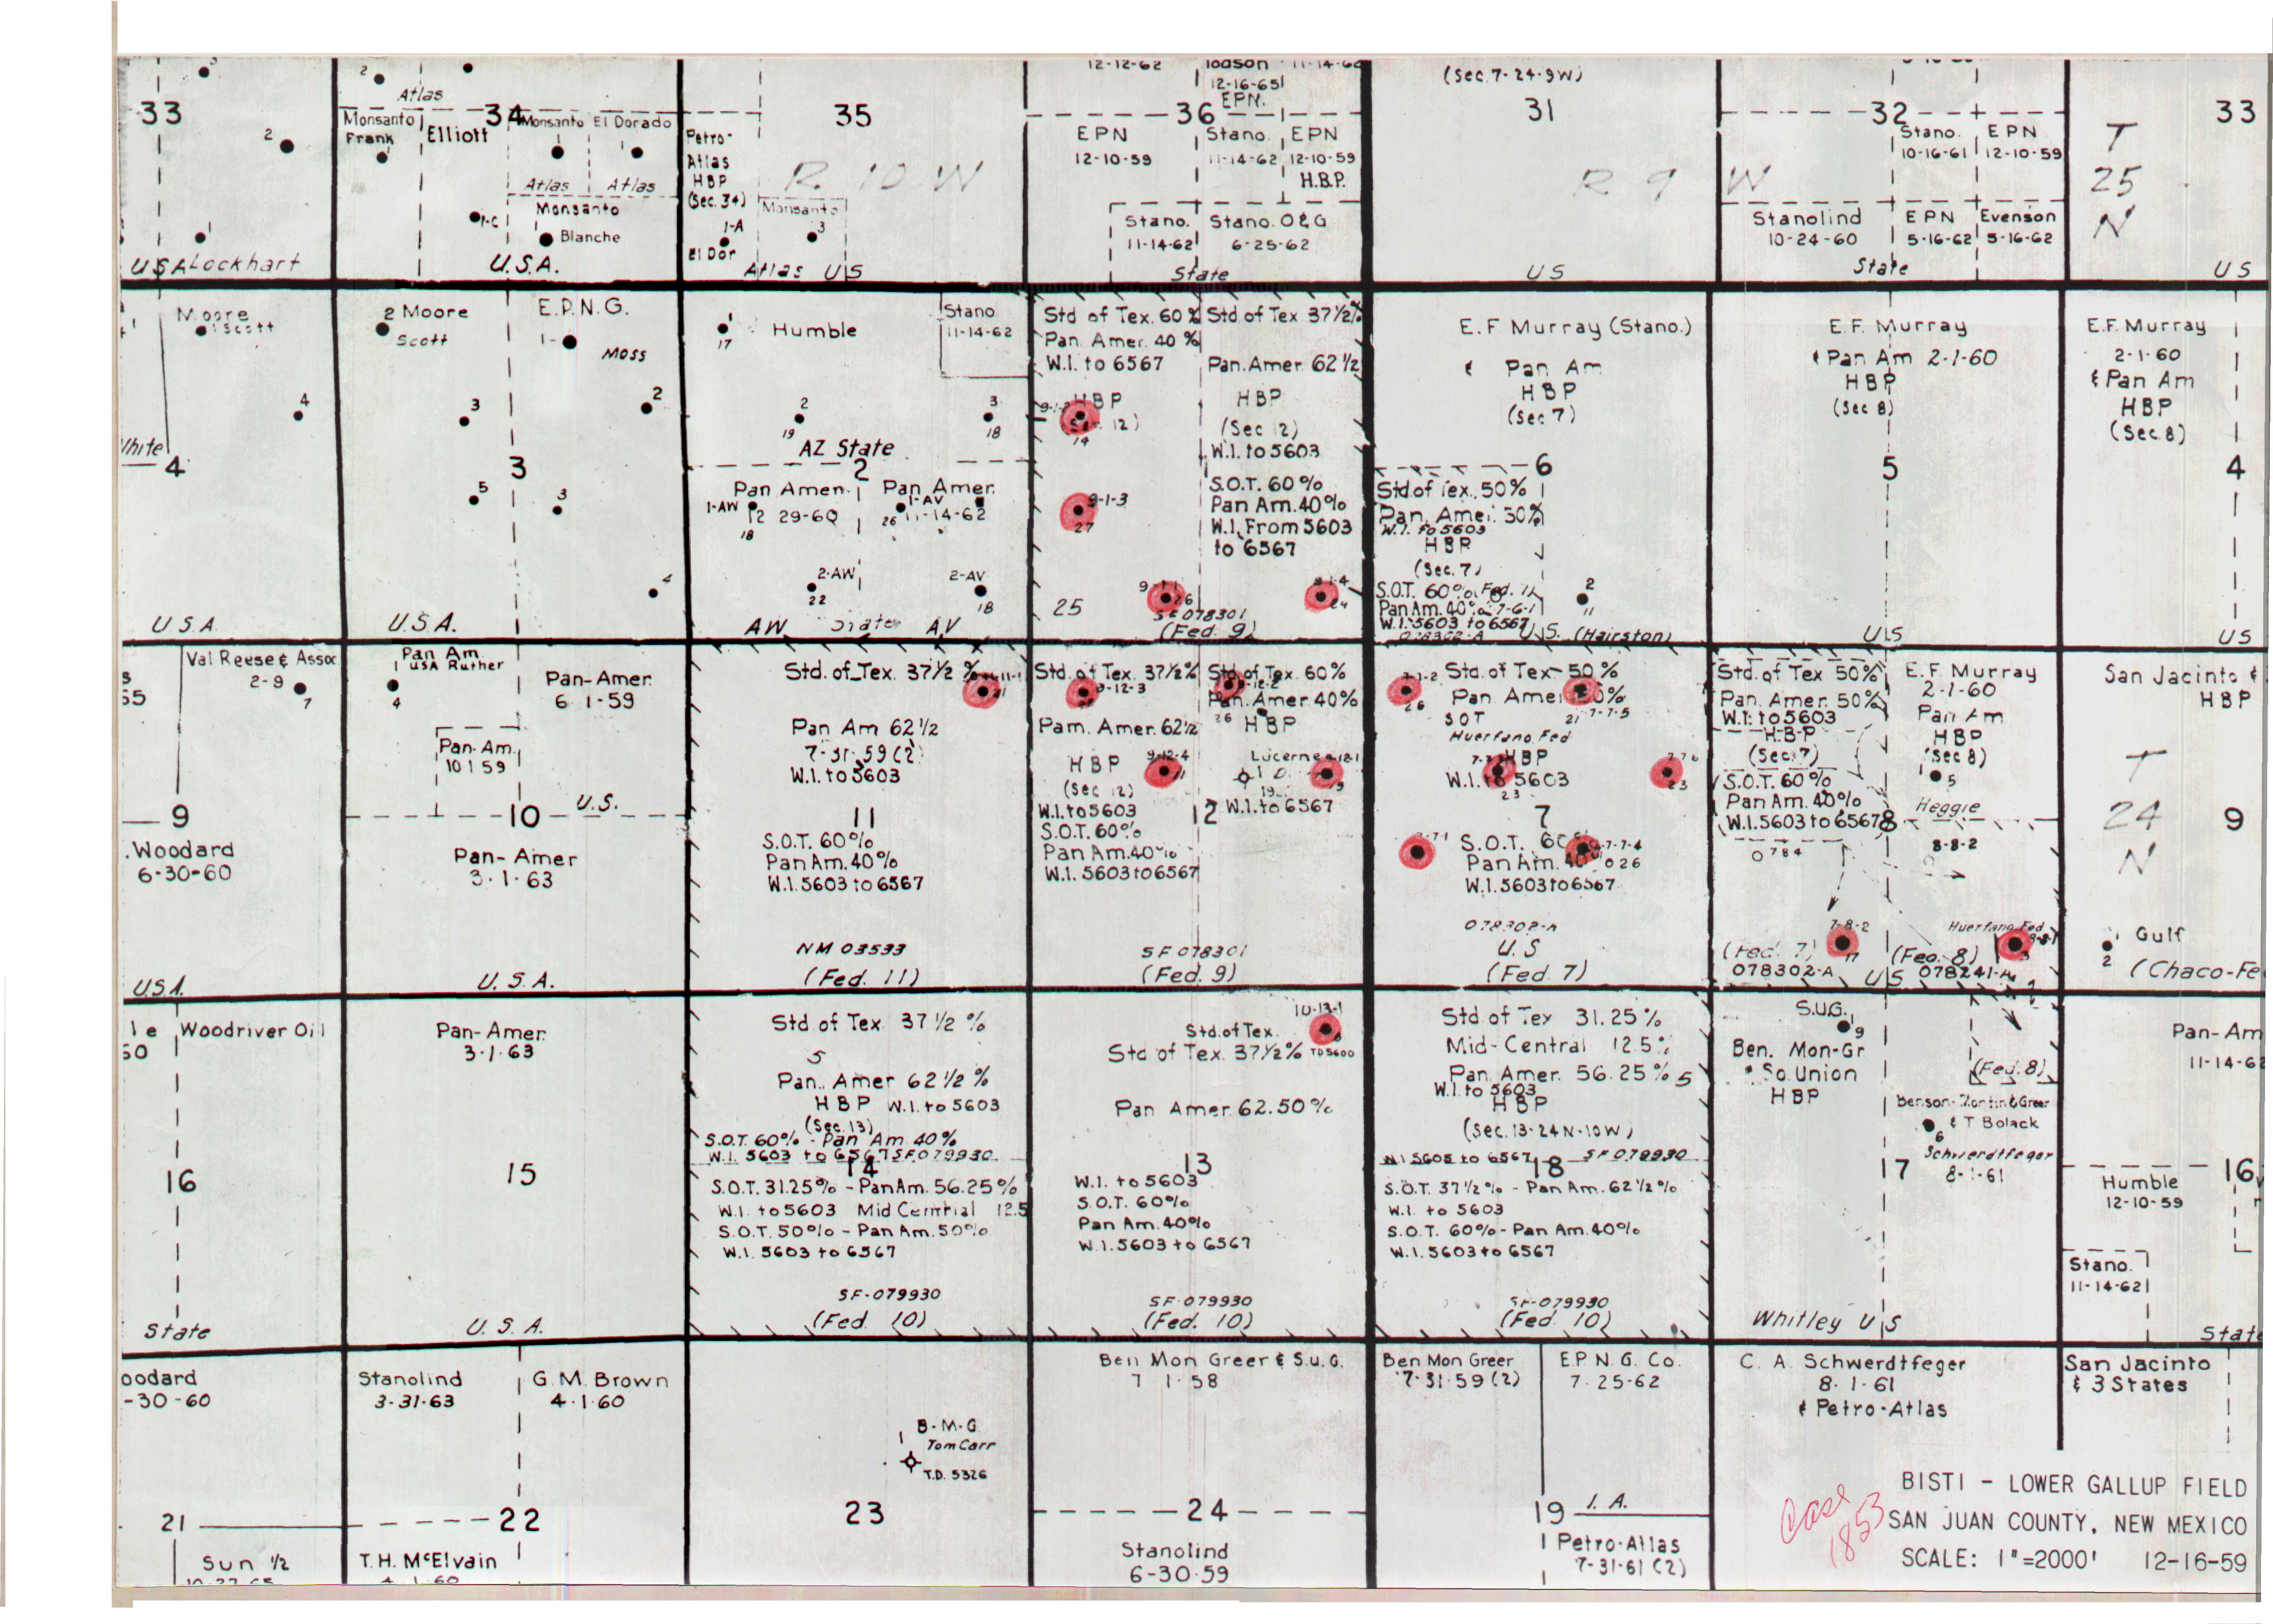 33
2
1
USA
Lockhart
2
Atlas
34
Monsanto
Frank
Elliott
Monsanto
El Dorado
Atlas
Atlas
1-C
Monsanto
Blanche
U.S.A.
35
Petro-
Atlas
HBP
(Sec. 34)
R. 10 W
Monsanto
3
1-A
El Dor
Atlas US
12-12-62
11-14-62
12-16-65
EPN.
36
EPN
12-10-59
Stano.
11-14-62
EPN
12-10-59
H.B.P.
Stano.
11-14-62
Stano. O&G
6-25-62
State
(Sec. 7-24-9W)
31
R 9 W
US
32
Stano.
10-16-61
EPN
12-10-59
Stanolind
10-24-60
EPN
5-16-62
Evenson
5-16-62
State
33
T
25
N
US
Moore
1 Scott
4
White
4
USA
2 Moore
Scott
E.P.N.G.
1-
Moss
2
3
3
5
3
4
U.S.A.
1
17
Humble
Stano
11-14-62
2
19
3
18
AZ State
2
Pan Amer.
1-AW
12 29-60
18
Pan Amer.
1-AV
26 11-14-62
2-AW
22
2-AV
18
AW State AV
Std of Tex. 60%
Pan. Amer. 40%
W.I. to 6567
HBP
14
9-1-3
27
25
26
24
Std. of Tex. 37½%
Pan. Amer. 62½
HBP
(Sec 12)
W.I. to 5603
S.O.T. 60%
Pan Am. 40%
W.I. From 5603
to 6567
SF 078301
(Fed. 9)
E.F Murray (Stano.)
& Pan Am
HBP
(Sec 7)
6
Std of Tex. 50%
Pan. Amer. 50%
W.I. to 5603
HBP
(Sec. 7)
S.O.T. 60%
Pan Am. 40%
7-6-1
W.I. 5603 to 6567
078302-A
2
11
U.S. (Hairston)
E.F. Murray
& Pan Am 2-1-60
HBP
(Sec 8)
5
US
E.F. Murray
2-1-60
& Pan Am
HBP
(Sec. 8)
4
US
Val Reese & Assoc
2-9
7
9
. Woodard
6-30-60
USA
Pan Am
1 USA Ruther
4
Pan-Amer.
6-1-59
Pan-Am.
10 1 59
10
U.S.
Pan-Amer
3-1-63
U.S.A.
Std. of Tex. 37½%
21
Pan Am 62½
7-31-59 (2)
W.I. to 5603
11
S.O.T. 60%
Pan Am. 40%
W.I. 5603 to 6567
NM 03533
(Fed. 11)
Std. of Tex. 37½%
9-12-3
Pam. Amer. 62½
HBP
(Sec 12)
9-12-4
11
W.I. to 5603
S.O.T. 60%
Pan Am. 40%
W.I. 5603 to 6567
Std. of Tex. 60%
9-12-2
Pan. Amer 40%
26 HBP
Lucerne
19
12
W.I. to 6567
SF 078301
(Fed. 9)
Std. of Tex 50%
26
21 7-7-5
SOT
Huerfano Fed
HBP
W.I. to 5603
23
23
7
S.O.T. 60%
7-7-4
Pan Am. 40%
026
W.I. 5603 to 6567
078302-A
U.S
(Fed. 7)
Std. of Tex 50%
Pan. Amer. 50%
W.I. to 5603
HBP
(Sec. 7)
S.O.T. 60%
Pan Am. 40%
W.I. 5603 to 6567
8
0784
E.F Murray
2-1-60
Pan Am
HBP
(Sec 8)
1
5
Heggie
8-8-2
7-8-2
17
(Fed. 7)
078302-A
Huerfano Fed
(Fed. 8)
US 078241-A
San Jacinto &
HBP
T
24
N
9
1 Gulf
2
(Chaco-Fe
Woodriver Oil
16
State
Pan-Amer.
3-1-63
15
U.S.A.
Std of Tex 37½%
5
Pan. Amer 62½%
HBP W.I. to 5603
(Sec. 13)
S.O.T. 60% - Pan Am 40%
W.I. 5603 to 6567 SF 079930
14
S.O.T. 31.25% - Pan Am. 56.25%
W.I. to 5603 Mid Central 12.5
S.O.T. 50% - Pan Am. 50%
W.I. 5603 to 6567
SF-079930
(Fed 10)
10-13-1
Std. of Tex.
Std of Tex. 37½% TD 5600
Pan Amer. 62.50%
13
W.I. to 5603
S.O.T. 60%
Pan Am. 40%
W.I. 5603 to 6567
SF 079930
(Fed. 10)
Std of Tex 31.25%
Mid-Central 12.5%
Pan. Amer. 56.25% 5
W.I. to 5603
HBP
(Sec. 13-24N-10W)
W.I 5603 to 6567 SF 079930
18
S.O.T. 37½% - Pan Am. 62½%
W.I. to 5603
S.O.T. 60% - Pan Am. 40%
W.I. 5603 to 6567
SF-079930
(Fed 10)
S.U.G.
9
Ben. Mon-Gr
So. Union
HBP
(Fed. 8)
Benson-Montin & Greer
& T Bolack
6
Schwerdtfeger
8-1-61
17
Whitley US
Pan-Am
11-14-62
16
Humble
12-10-59
Stano.
11-14-62
State
oodard
-30-60
21
Sun ½
Stanolind
3-31-63
G. M. Brown
4-1-60
22
T. H. McElvain
4-1-60
B-M-G
1 Tom Carr
T.D. 5326
23
Ben Mon Greer & S.U.G.
7 1-58
24
Stanolind
6-30-59
Ben Mon Greer
7-31-59 (2)
E.P.N.G. Co.
7-25-62
19
I. A.
Petro-Atlas
7-31-61 (2)
C. A. Schwerdtfeger
8-1-61
& Petro-Atlas
San Jacinto
& 3 States
Case
1853
BISTI - LOWER GALLUP FIELD
SAN JUAN COUNTY, NEW MEXICO
SCALE: 1"=2000' 12-16-59